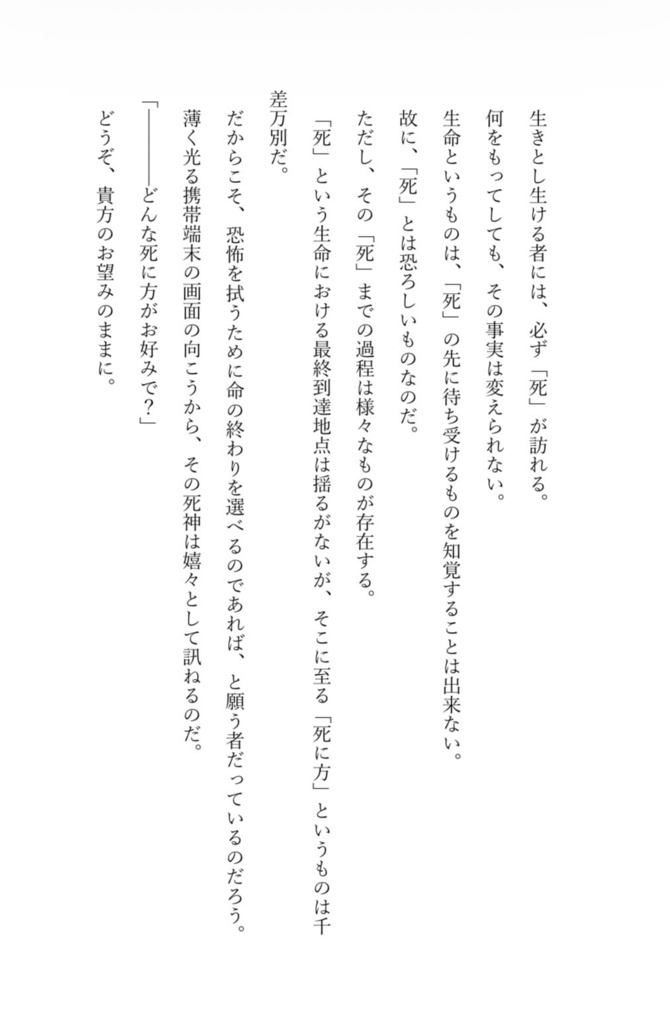 生きとし生ける者には、必ず「死」が訪れる。
何をもってしても、その事実は変えられない。
生命というものは、「死」の先に待ち受けるものを知覚することは出来ない。
故に、「死」とは恐ろしいものなのだ。
ただし、その「死」までの過程は様々なものが存在する。
「死」という生命における最終到達地点は揺るがないが、そこに至る「死に方」というものは千
差万別だ。
だからこそ、恐怖を拭うために命の終わりを選べるのであれば、と願う者だっているのだろう。
薄く光る携帯端末の画面の向こうから、その死神は嬉々として訊ねるのだ。
「―――どんな死に方がお好みで？」
どうぞ、貴方のお望みのままに。